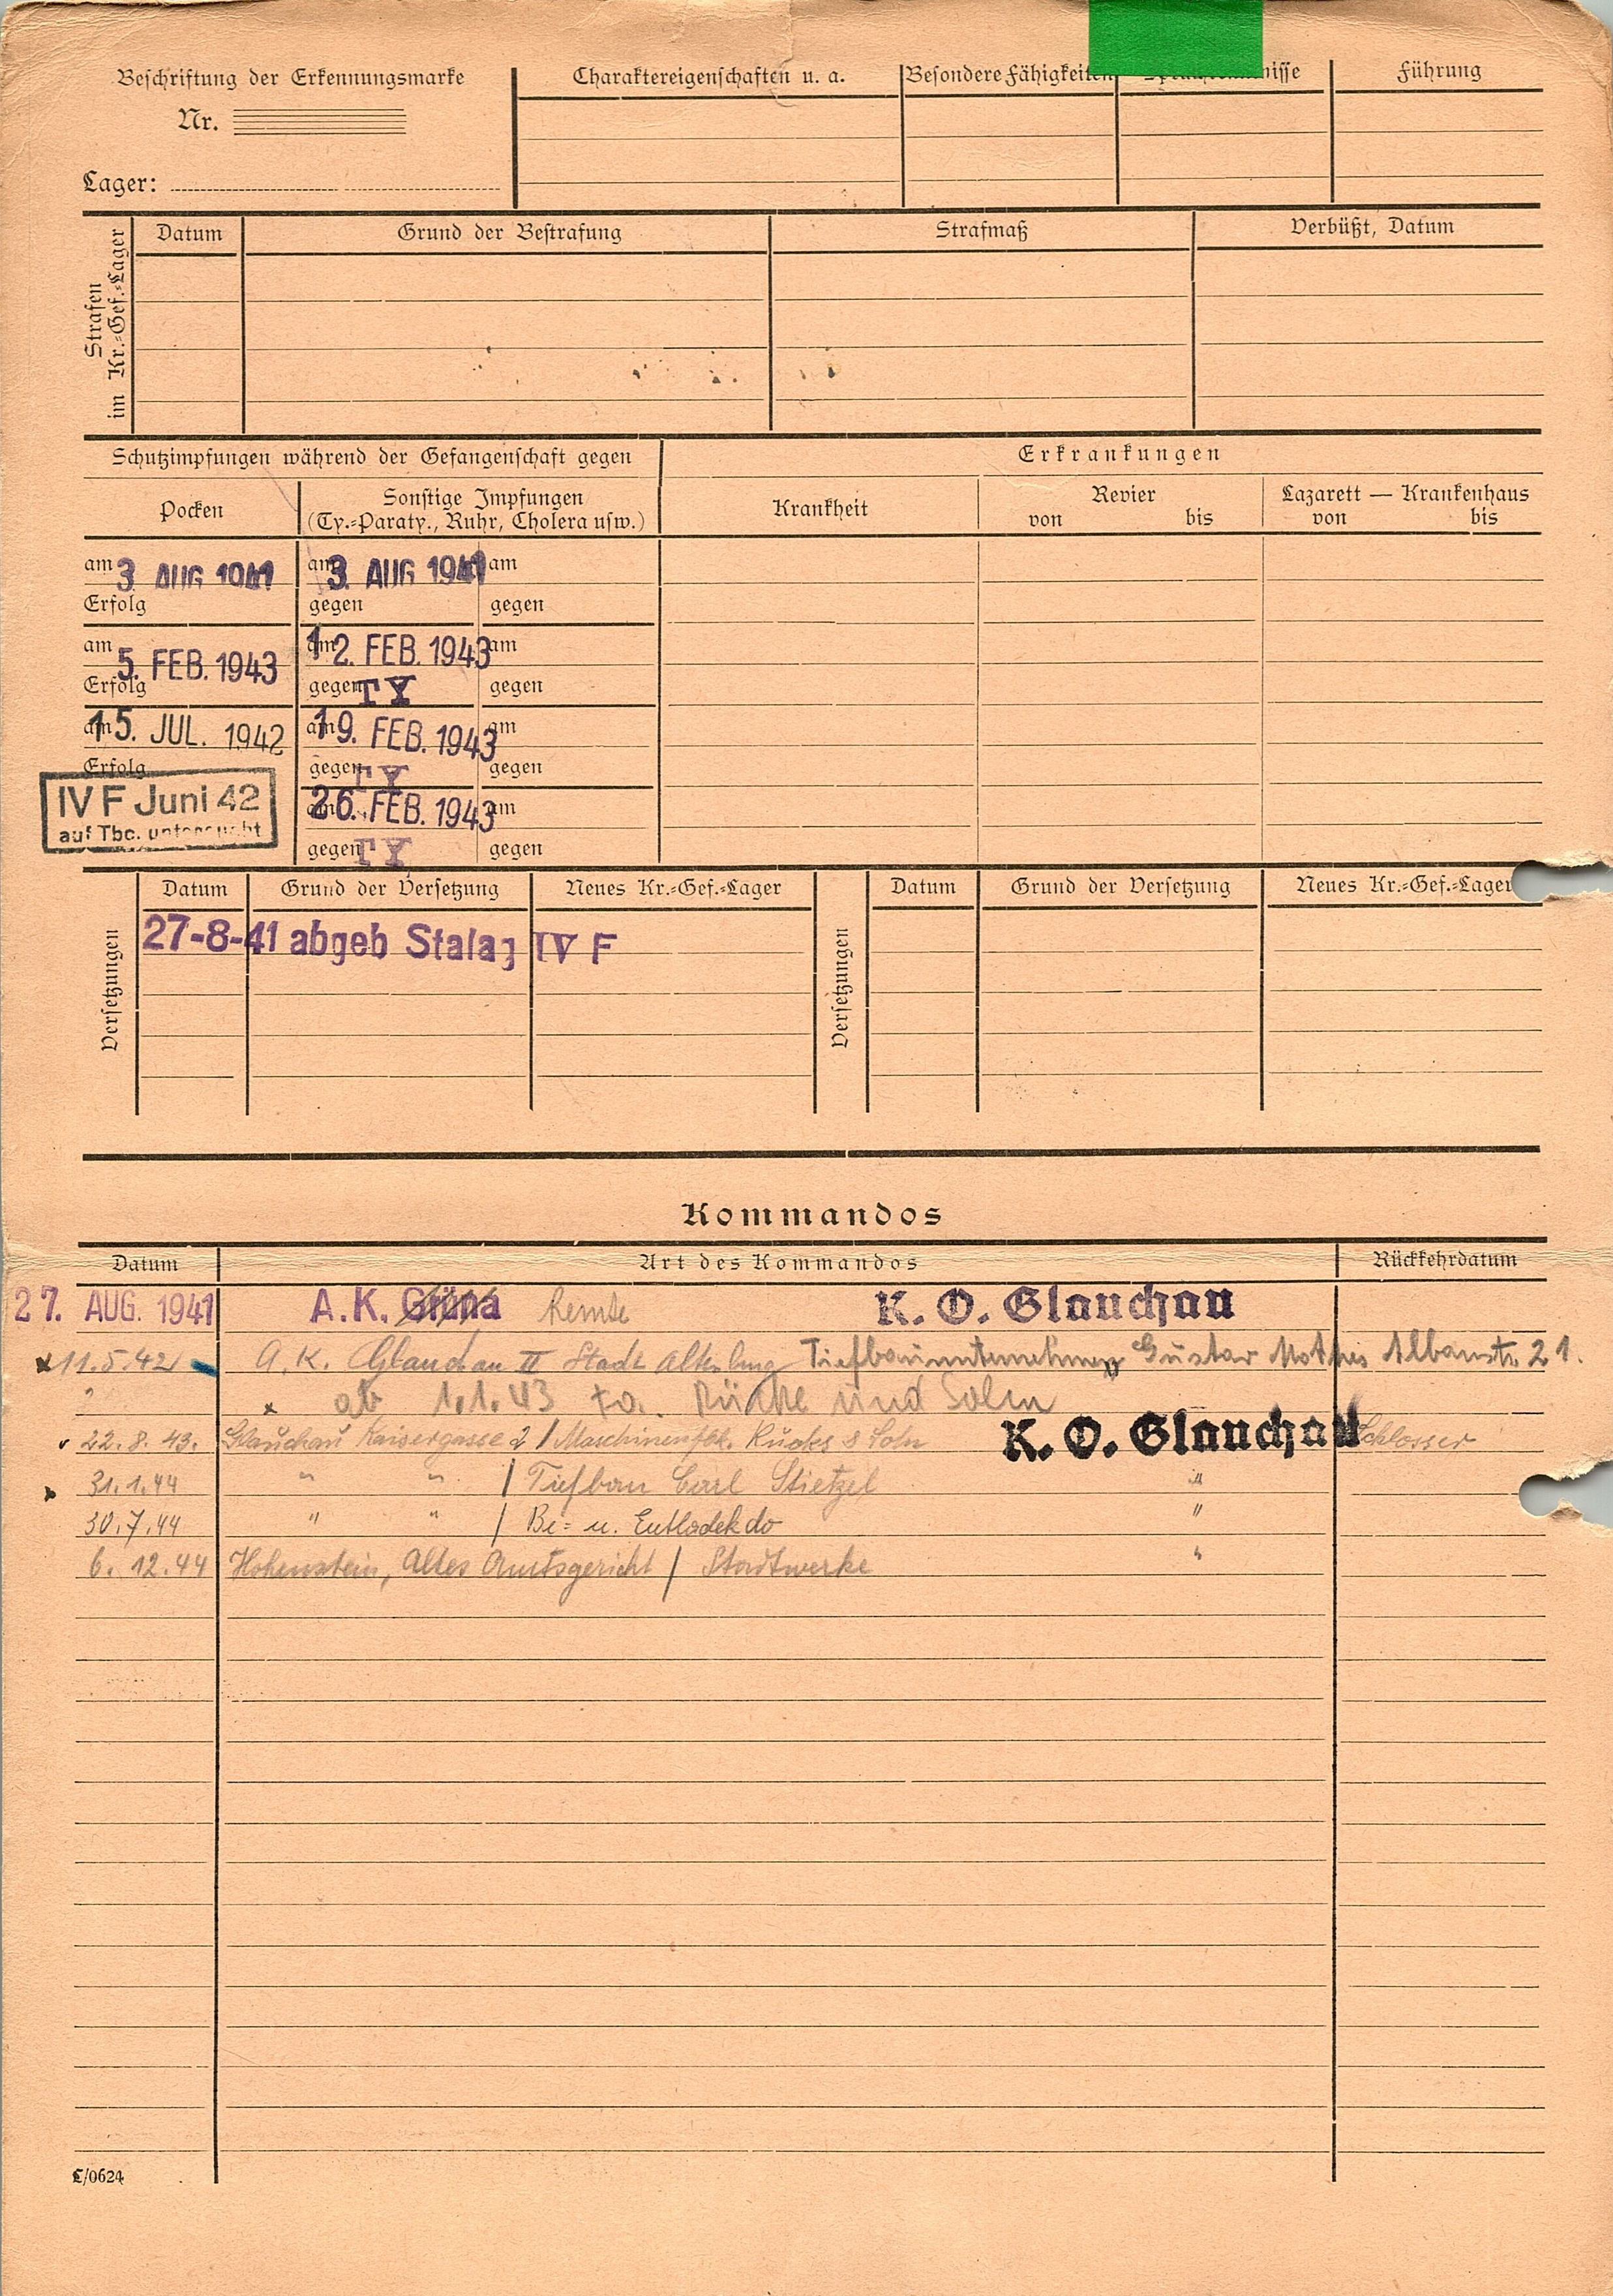 Beschriftung der Erkennungsmarke
Nr.
Lager:
Charaktereigenschaften u. a.
Besondere Fähigkeiten
Führung
Strafen
im Kr.-Gef.-Lager
Datum
Grund der Bestrafung
Strafmaß
Verbüßt, Datum
Schutzimpfungen während der Gefangenschaft gegen
Erkrankungen
Pocken
Sonstige Impfungen
(Ty.-Paraty., Ruhr, Cholera usw.)
Krankheit
Revier
von bis
Lazarett — Krankenhaus
von bis
am 3. AUG 1941 am 3. AUG 1941 am
Erfolg gegen gegen
am 5. FEB. 1943 am 12. FEB. 1943 am
Erfolg gegen TY gegen
am 15. JUL. 1942 am 19. FEB. 1943 am
Erfolg gegen TY gegen
IV F Juni 42
auf Tbc. untersucht
am 26. FEB. 1943 am
gegen TY gegen
Versetzungen
Datum Grund der Versetzung Neues Kr.-Gef.-Lager
27-8-41 abgeb Stalag IV F
Versetzungen
Datum Grund der Versetzung Neues Kr.-Gef.-Lager
Kommandos
Datum Art des Kommandos Rückkehrdatum
27. AUG. 1941 A. K. Grüna Remse K. O. Glauchau
11.5.42 A. K. Glauchau II Stadt Altenburg Tiefbauunternehmen Gustav Mothes Albanstr. 21.
" x ab 1.1.43 Fa. und Sohn
22.8.43. Glauchau Kaisergasse 2 / Maschinenfbk. Rucks & Sohn K. O. Glauchau Schlosser
31.1.44 " " / Tiefbau Carl Stietzel "
30.7.44 " " / Be= u. Entladekdo "
6.12.44 Hohenstein, Altes Amtsgericht / Stadtwerke "
C/0624